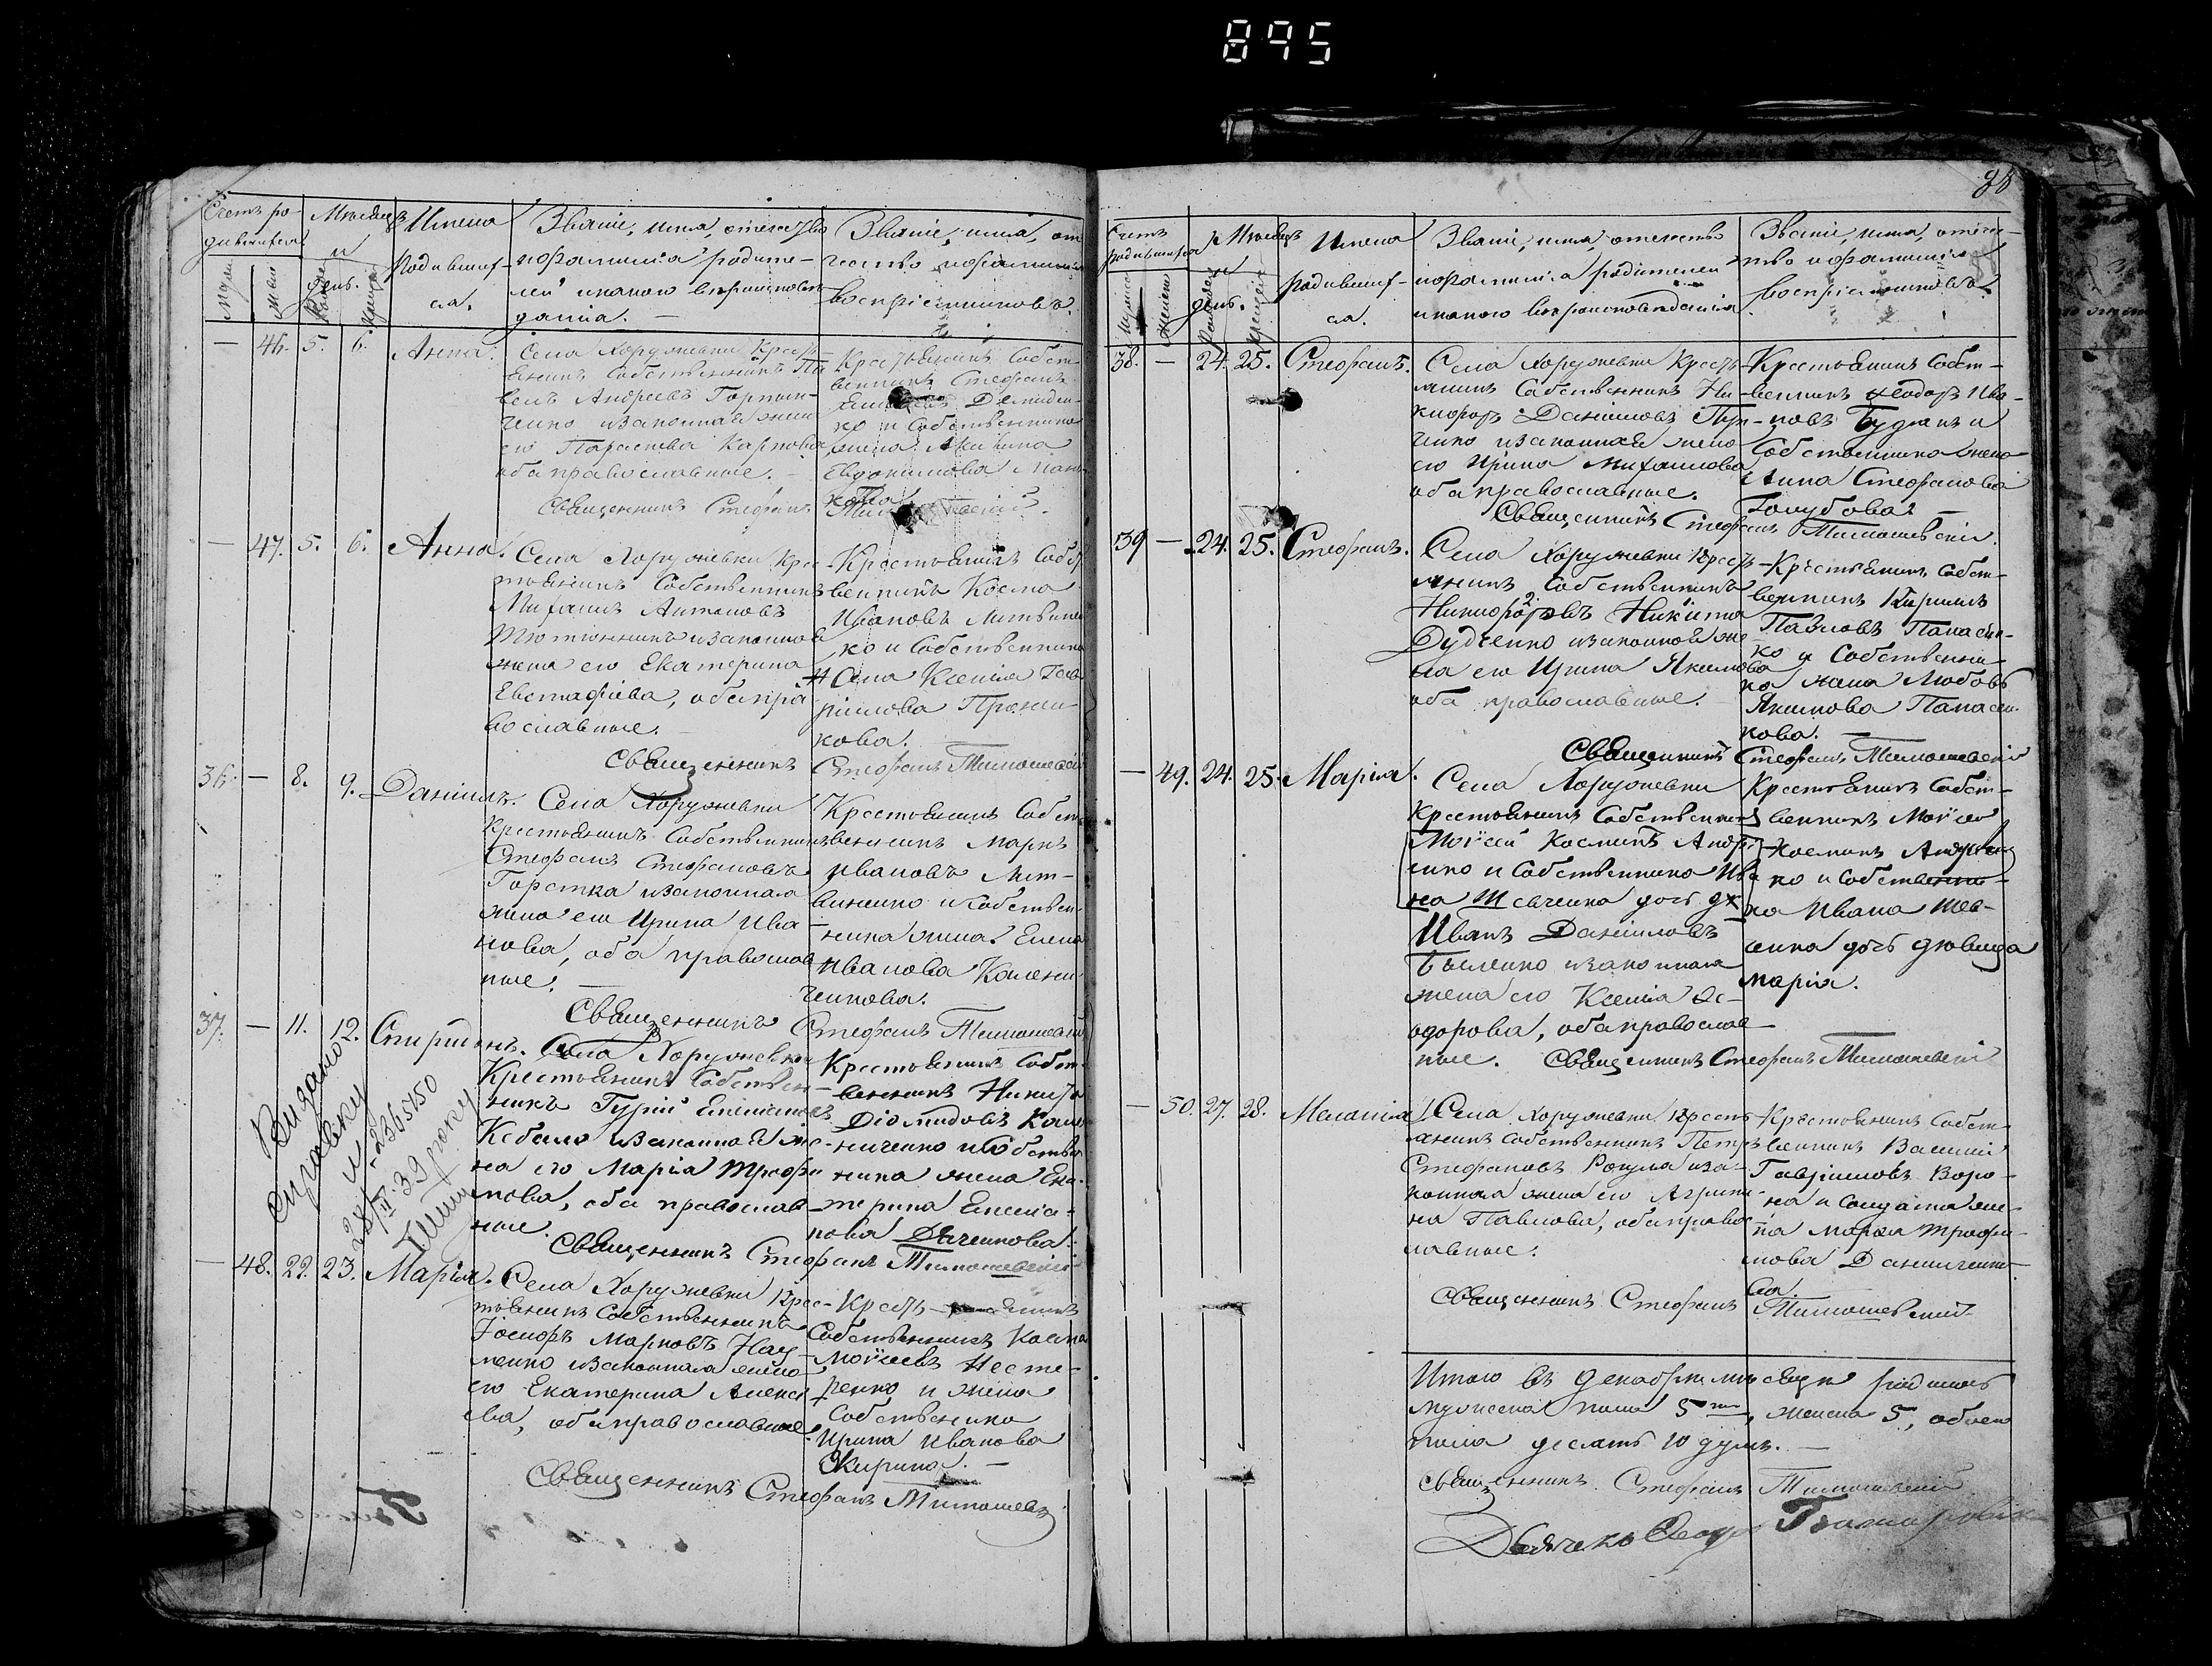 895
Счетъ ро-
дившихся
Мѣсяцъ
и
день.
Имена
родивших-
ся.
Званіе, имя, отечество
и фамилія родите-
лей и какого вѣроисповѣ-
данія. —
Званіе, имя, оте-
чество и фамилія
воспріемниковъ.
— 46. 5. 6. Анна.
Села Хоружевки Кресть-
янинъ Собственникъ Па
велъ Андреевъ Горпин-
ченко и законная жена
его Параскева Карпова
оба православные.
Крестьянинъ Собст-
венникъ Стефанъ
Демиден-
ко и Собственника
жена Акилина
Евдокимова
Священникъ Стефанъ
— 47. 5. 6. Анна.
Села Хоружевки Крес-
тьянинъ Собственникъ
Михаилъ Антоновъ
Тютюнникъ и законная
жена его Екатерина
Евстафіева, оба пра
вославные. —
Крестьянинъ Собст
венникъ Косма
Ивановъ Литвинен
ко и Собственника
жена Ксенія Гав
рилова
кова. —
Священникъ Стефанъ Тимошевскій
36. — 8. 9. Даніилъ.
Села Хоружевки
Крестьянинъ Собственникъ
Стефанъ Стефановъ
Горстка и законная
жена его Ирина Ива
нова, оба православ
ные. —
Крестьянинъ Собст
венникъ Маркъ
Ивановъ Лит-
виненко и Собствен
ника жена Елена
Иванова Коломій
ченкова.
Священникъ Стефанъ Тимошевскій
37. — 11. 12. Спиридонъ.
Села Хоружевки
Крестьянинъ Собствен-
никъ Гурій Емеліановъ
Кебало и законная же-
на его Марія Трофи
мова, оба православ
ные.
Крестьянинъ Собст-
венникъ Никита
Діомидовъ Коло
мійченко и Собствен
ника жена Ека-
терина Емелія-
нова Дяченкова.
Священникъ Стефанъ Тимошевскій
Видано
справку
и
- 236450
28/II.39 року
— 48. 22. 23. Марія.
Села Хоружевки Крес-
тьянинъ Собственникъ
Іосифъ Марковъ Нау-
менко и законная жена
его Екатерина Алексѣ
ева, оба православные
Кресть- янинъ
Собственникъ Косма
Моисеевъ Несте-
ренко и жена
Собственника
Ирина Иванова
Скирина. —
Священникъ Стефанъ Тимошевск
Счетъ
родившихся
Мѣсяцъ
и
день.
Имена
родивших-
ся.
Званіе, имя, отечество
и фамилія родителей
и какого вѣроисповѣданія
Званіе, имя, отече-
ство и фамилія
воспріемниковъ.
38. — 24. 25. Стефанъ.
Села Хоружевки Кресть-
янинъ Собственникъ Ни-
кифоръ Даніиловъ
ченко и законная жена
его Ирина Михаилова
оба православные.
Крестьянинъ Собст-
венникъ Ѳеодоръ Ива-
новъ Будканъ и
Собственника жена
Анна Стефанова
Голубова. —
Священникъ Стефанъ Тимошевскій.
39 — 24. 25. Стефанъ.
Села Хоружевки Кресть-
янинъ Собственникъ
Никифоровъ Никита
Дудченко и законная же
на его Ирина Якимова
оба православные. —
Крестьянинъ Собст-
венникъ Кириллъ
Павловъ Панасен-
ко и Собственни
ка жена Любовь
Якимова Панасен-
кова. —
Священникъ Стефанъ Тимошевскій
— 49. 24. 25. Марія.
Села Хоружевки
Крестьянинъ Собственникъ
Моѵсей Косминъ Андрѣ
енко и Собственника Ива
на Шевченка дочь дѣ
Иванъ Даніиловъ
Бѣленко и законная
жена его Ксенія Ѳе-
одорова, оба православ-
ные.
Крестьянинъ Собст-
венникъ Моѵсей
Косминъ Андреен
ко и Собственни-
ка Ивана Шев-
ченка дочь дѣвица
Марія.
Священникъ Стефанъ Тимошевскій
— 50. 27. 28. Меланія.
Села Хоружевки Кресть-
янинъ Собственникъ Петръ
Стефановъ Рокула и за-
конная жена его Агрипи-
на Павлова, оба правос
лавные.
Крестьянинъ Собст-
венникъ Василій
Гавриловъ Воро-
на и Солдата же-
на Марѳа Трофи-
мова Даниченко-
ва.
Священникъ Стефанъ Тимошевскій
Итого въ Декабрѣ мѣсяцѣ родилось
мужеска пола 5ть, женска 5, обоего
пола десять 10 душъ. —
Священникъ Стефанъ Тимошевскій
Дьячекъ